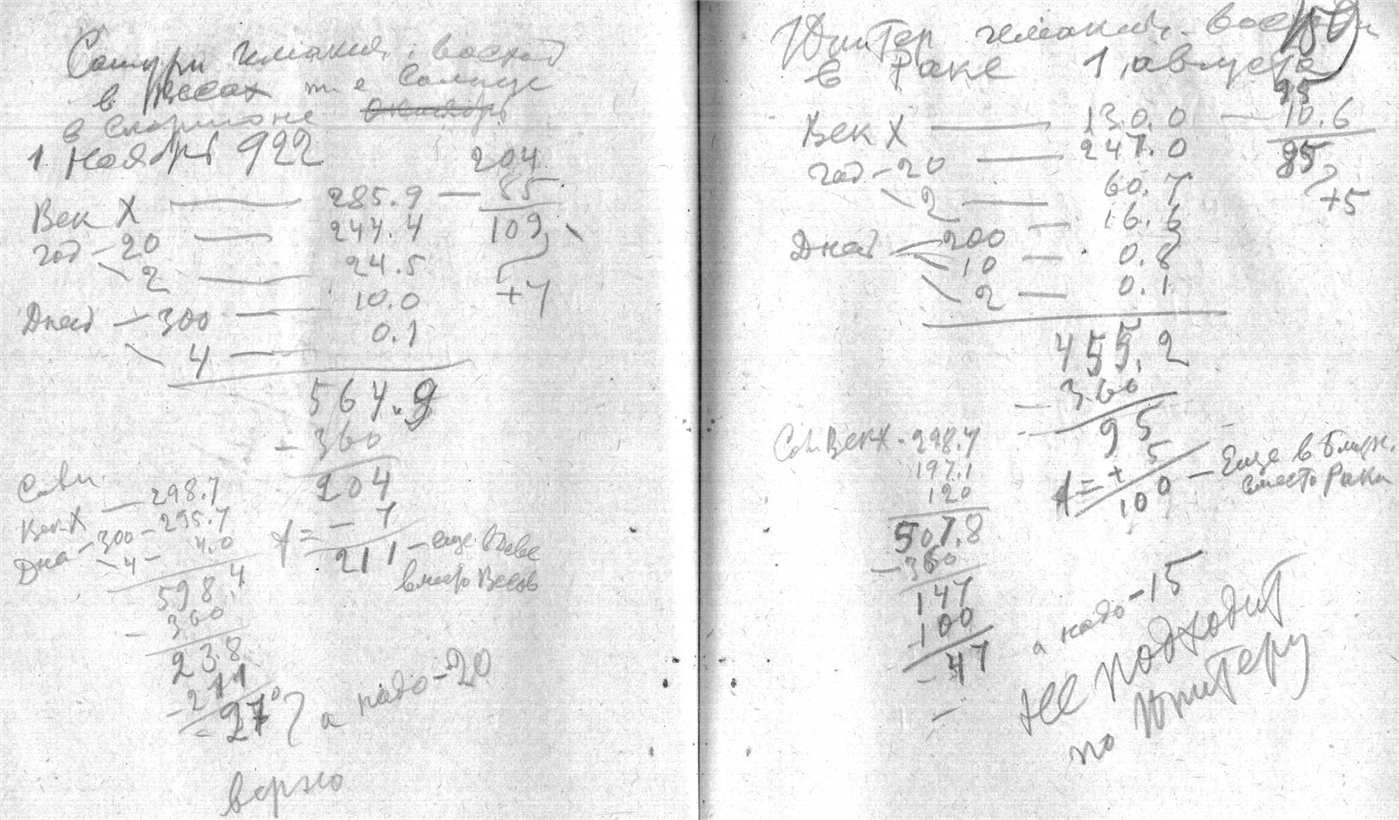 Сатурн гелиакич. восход
в Весах т. е Солнце
в Скорпионе Октябрь
1. Ноября 922
204
Век X — 285.9 — 85
109
год - 20 — 244.4
2 — 24.5
+7
Дней — 300 — 10.0
4 — 0.1
564.9
- 360
204
- 7
λ = 211 — еще в Деве
вместо Весов
Солн.
Век X — 298.7
Дня - 300 - 295.7
- 4 - 4.0
598.4
- 360
238
- 211
- 27° а надо - 20
верно
Юпитер гелиакич. восход 150
в Раке 1, августа
95
Век X — 130.0 — 10.6
85
год - 20 — 247.0
+5
2 — 60.7
Дней — 200 — 16.6
10 — 0.8
2 — 0.1
455.2
- 360
95
+ 5
λ = 100 — Еще в Близн.
вместо Рака
Сол. Век X - 298.7
197.1
120
507.8
- 360
147
100
- 47 а надо - 15
Не подходит
по Юпитеру